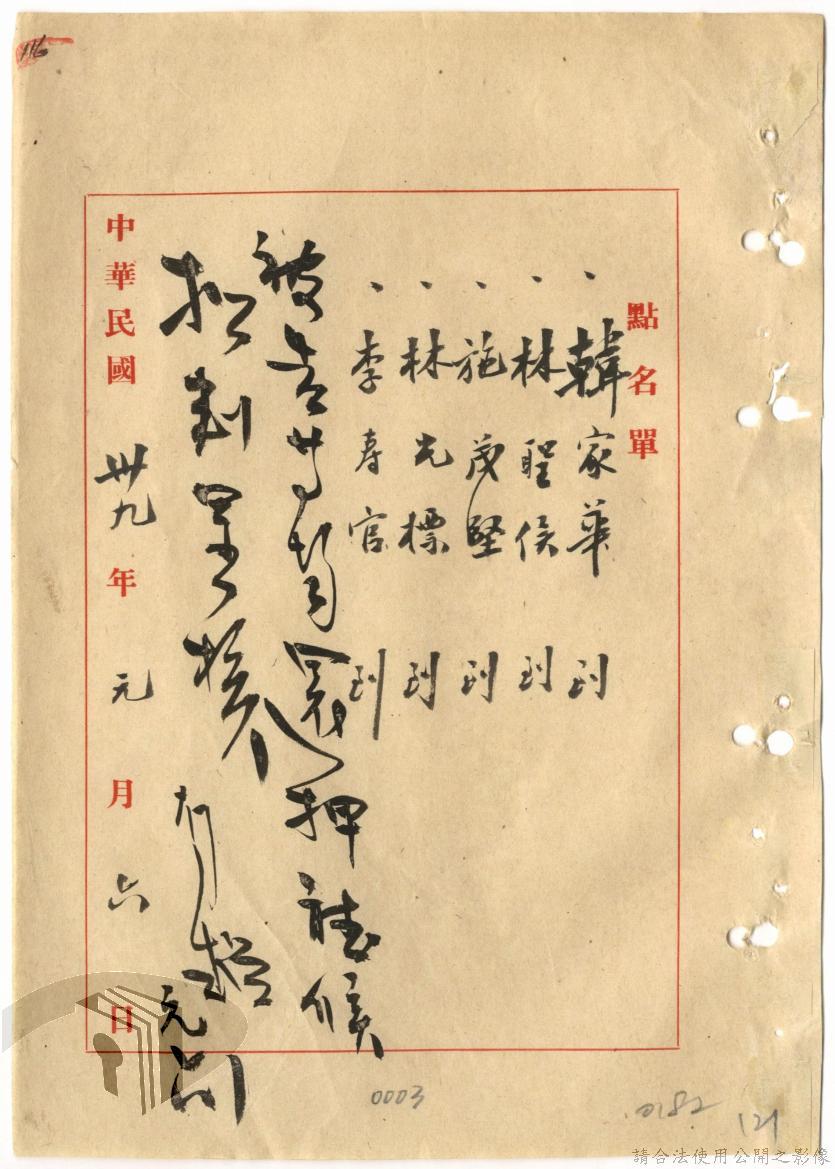 點名單
韓家華 到
林聖侯 到
施茂堅 到
林光標 到
李壽官 到
被告等均還押聽候
核
元
中華民國卅九年元月六日
116
0003
0182
121
請合法使用公開之影像